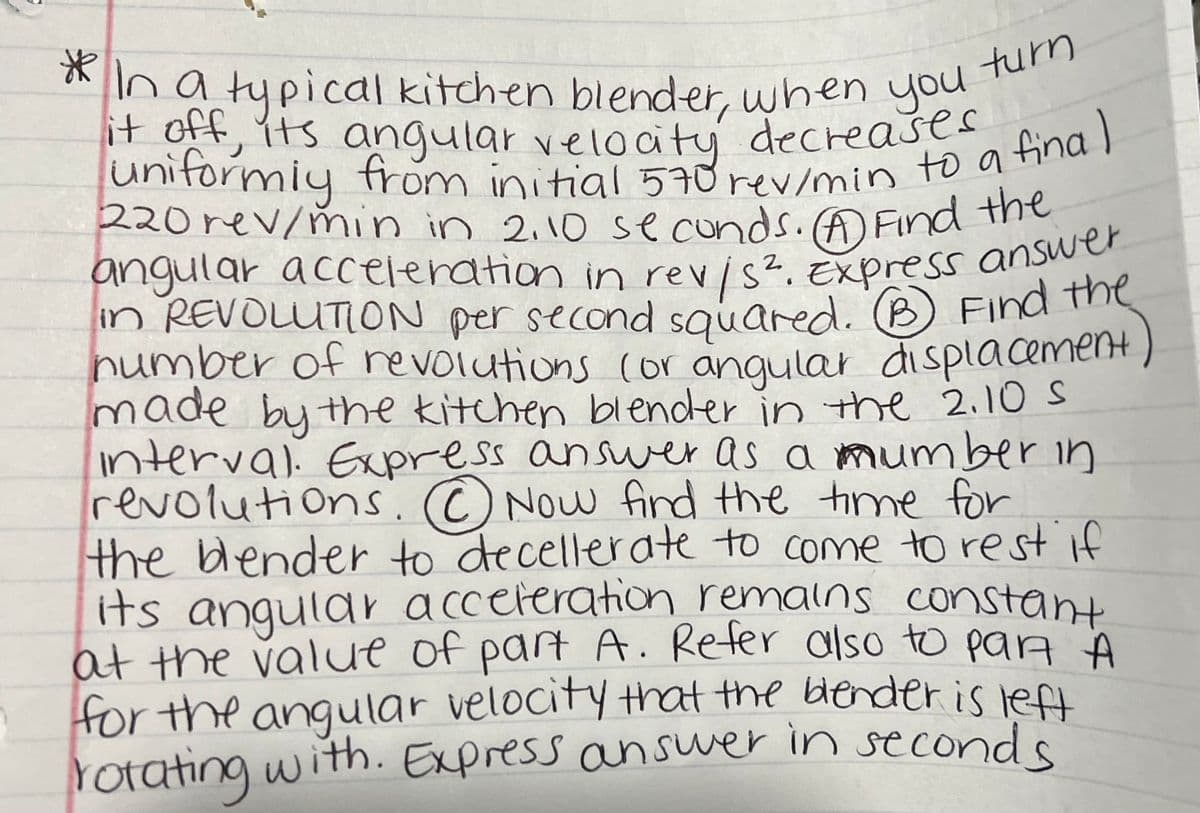 * In a typical kitchen blender, when you turn
it off, its angular velocity decreases
uniformly from initial 570 rev/min to a final
220 rev/min in 2.10 seconds. (A) Find the
angular acceleration in rev/s². Express answer
in REVOLUTION per second squared. (B) Find the
number of revolutions (or angular displacement)
made by the kitchen blender in the 2.10 s
interval. Express answer as a mumber in
revolutions. (C) Now find the time for
the blender to decellerate to come to rest if
its angular acceleration remains constant
at the value of part A. Refer also to part A
for the angular velocity that the blender is left
rotating with. Express answer in seconds